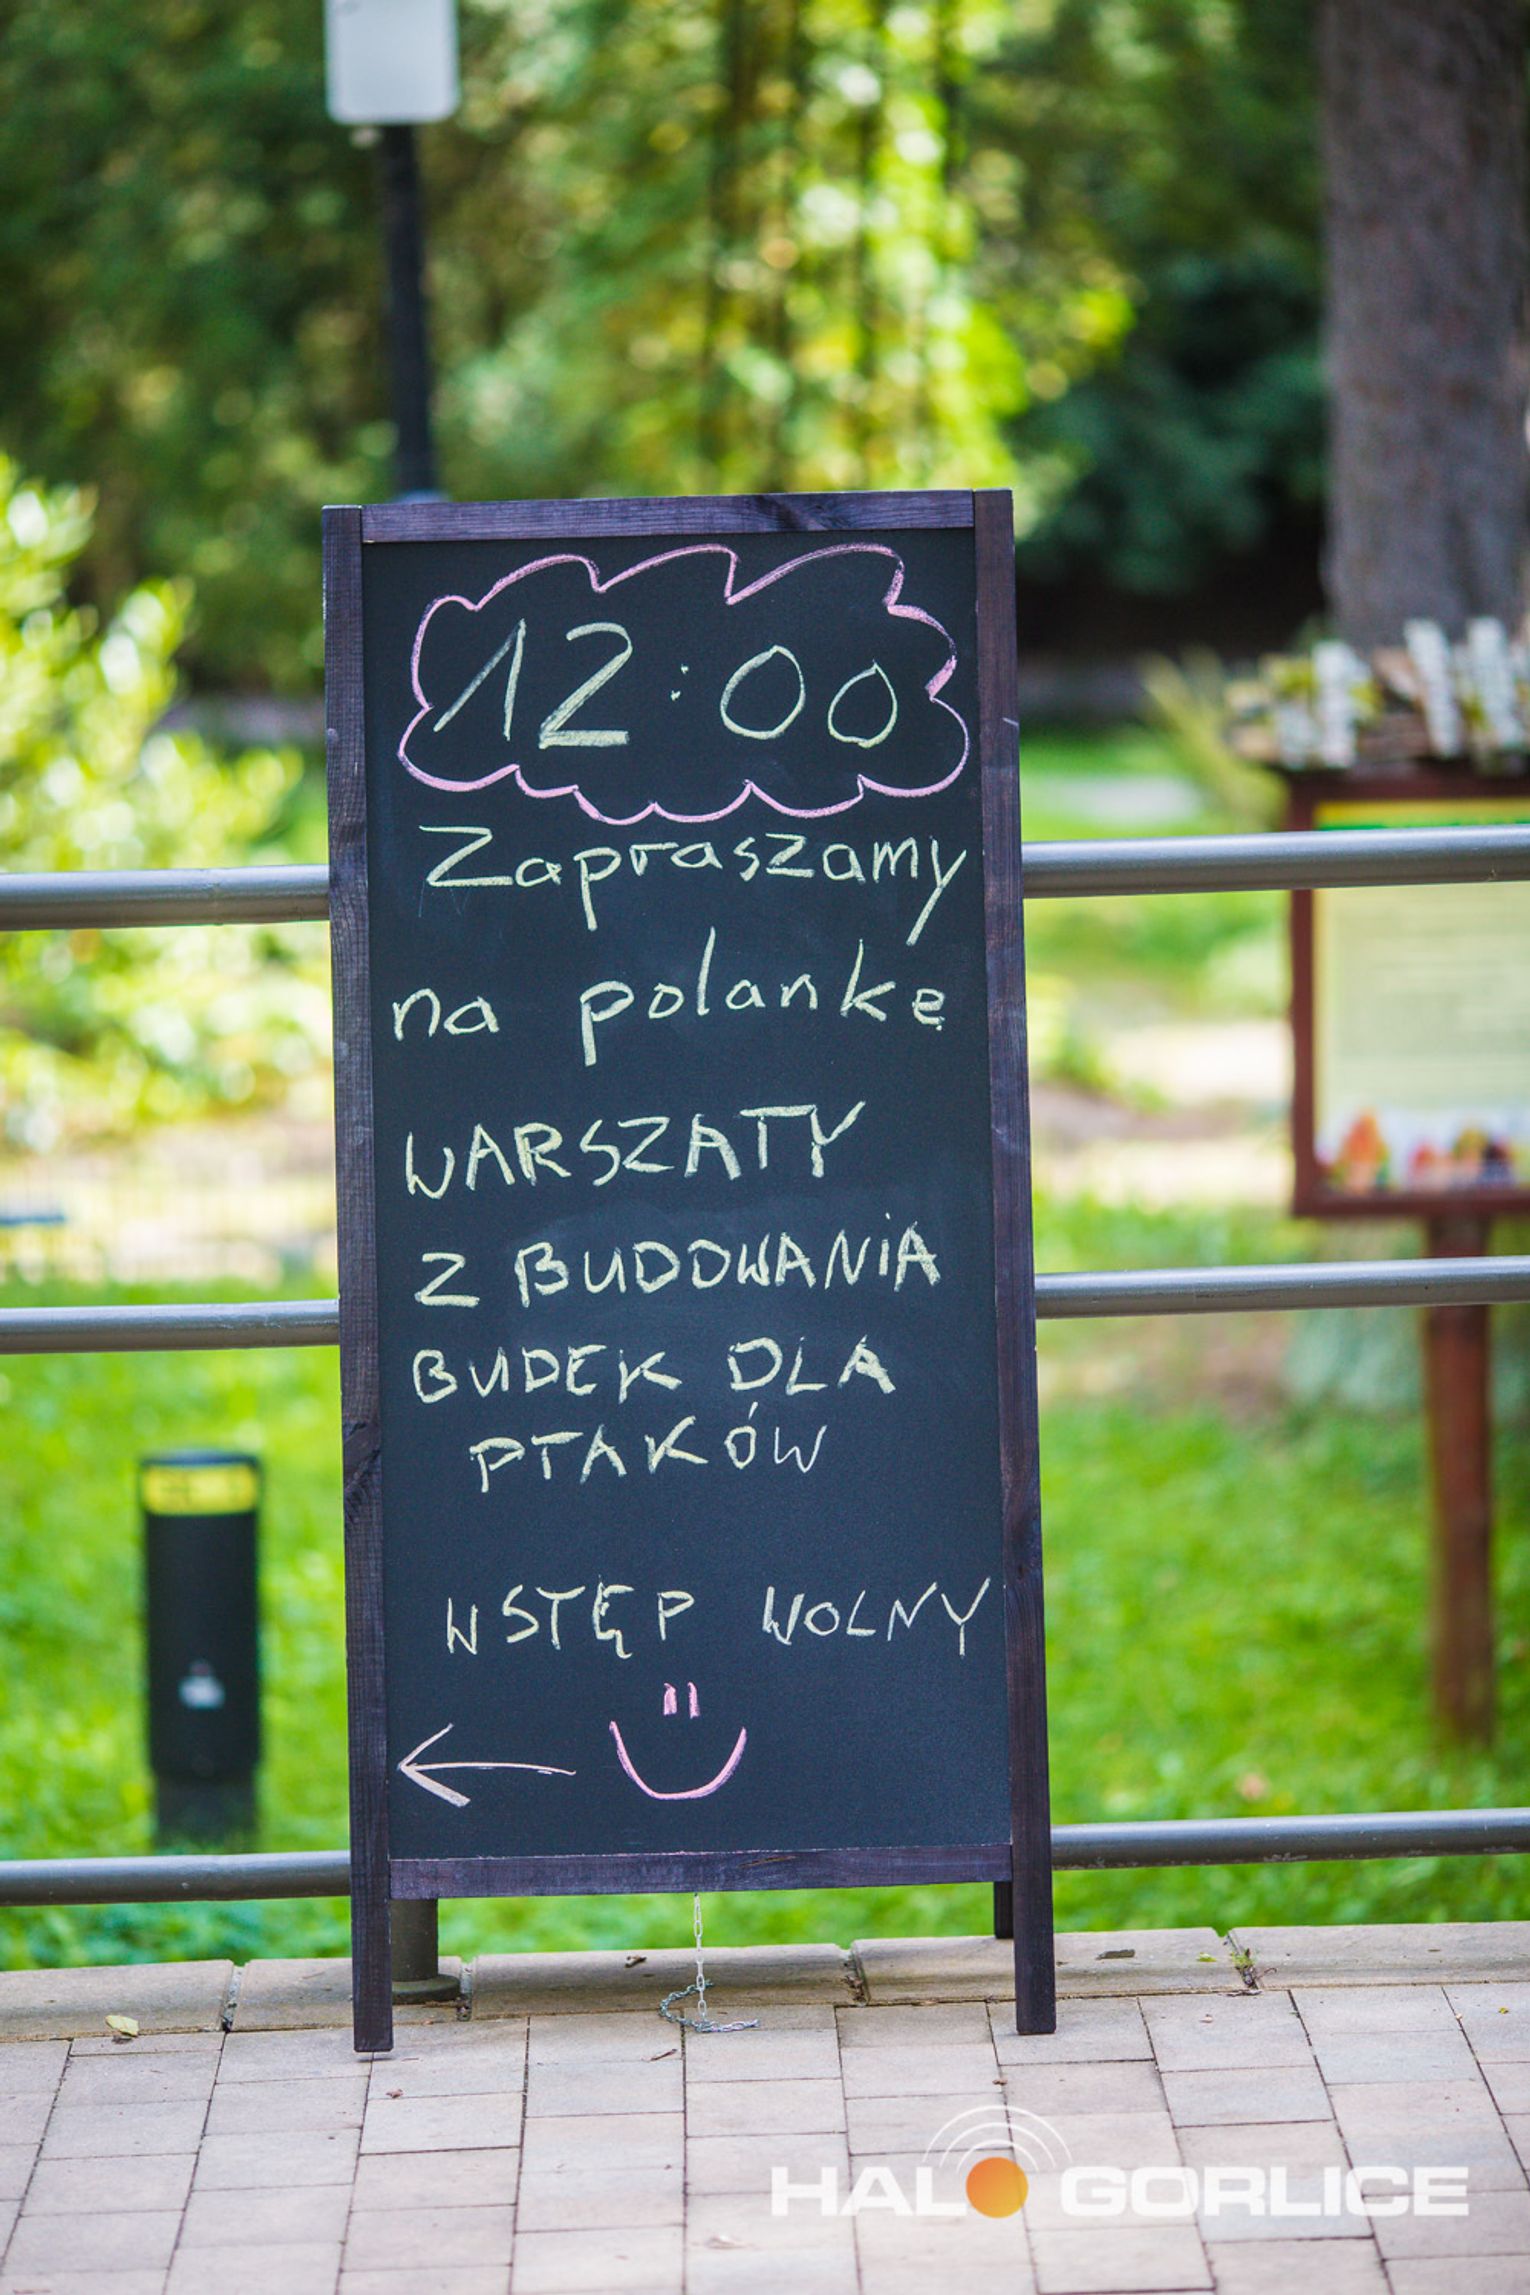 12:00
Zapraszamy
na polankę
WARSZATY
Z BUDOWANiA
BUDEK DLA
PTAKÓW
WSTĘP WOLNY
HALO GORLICE